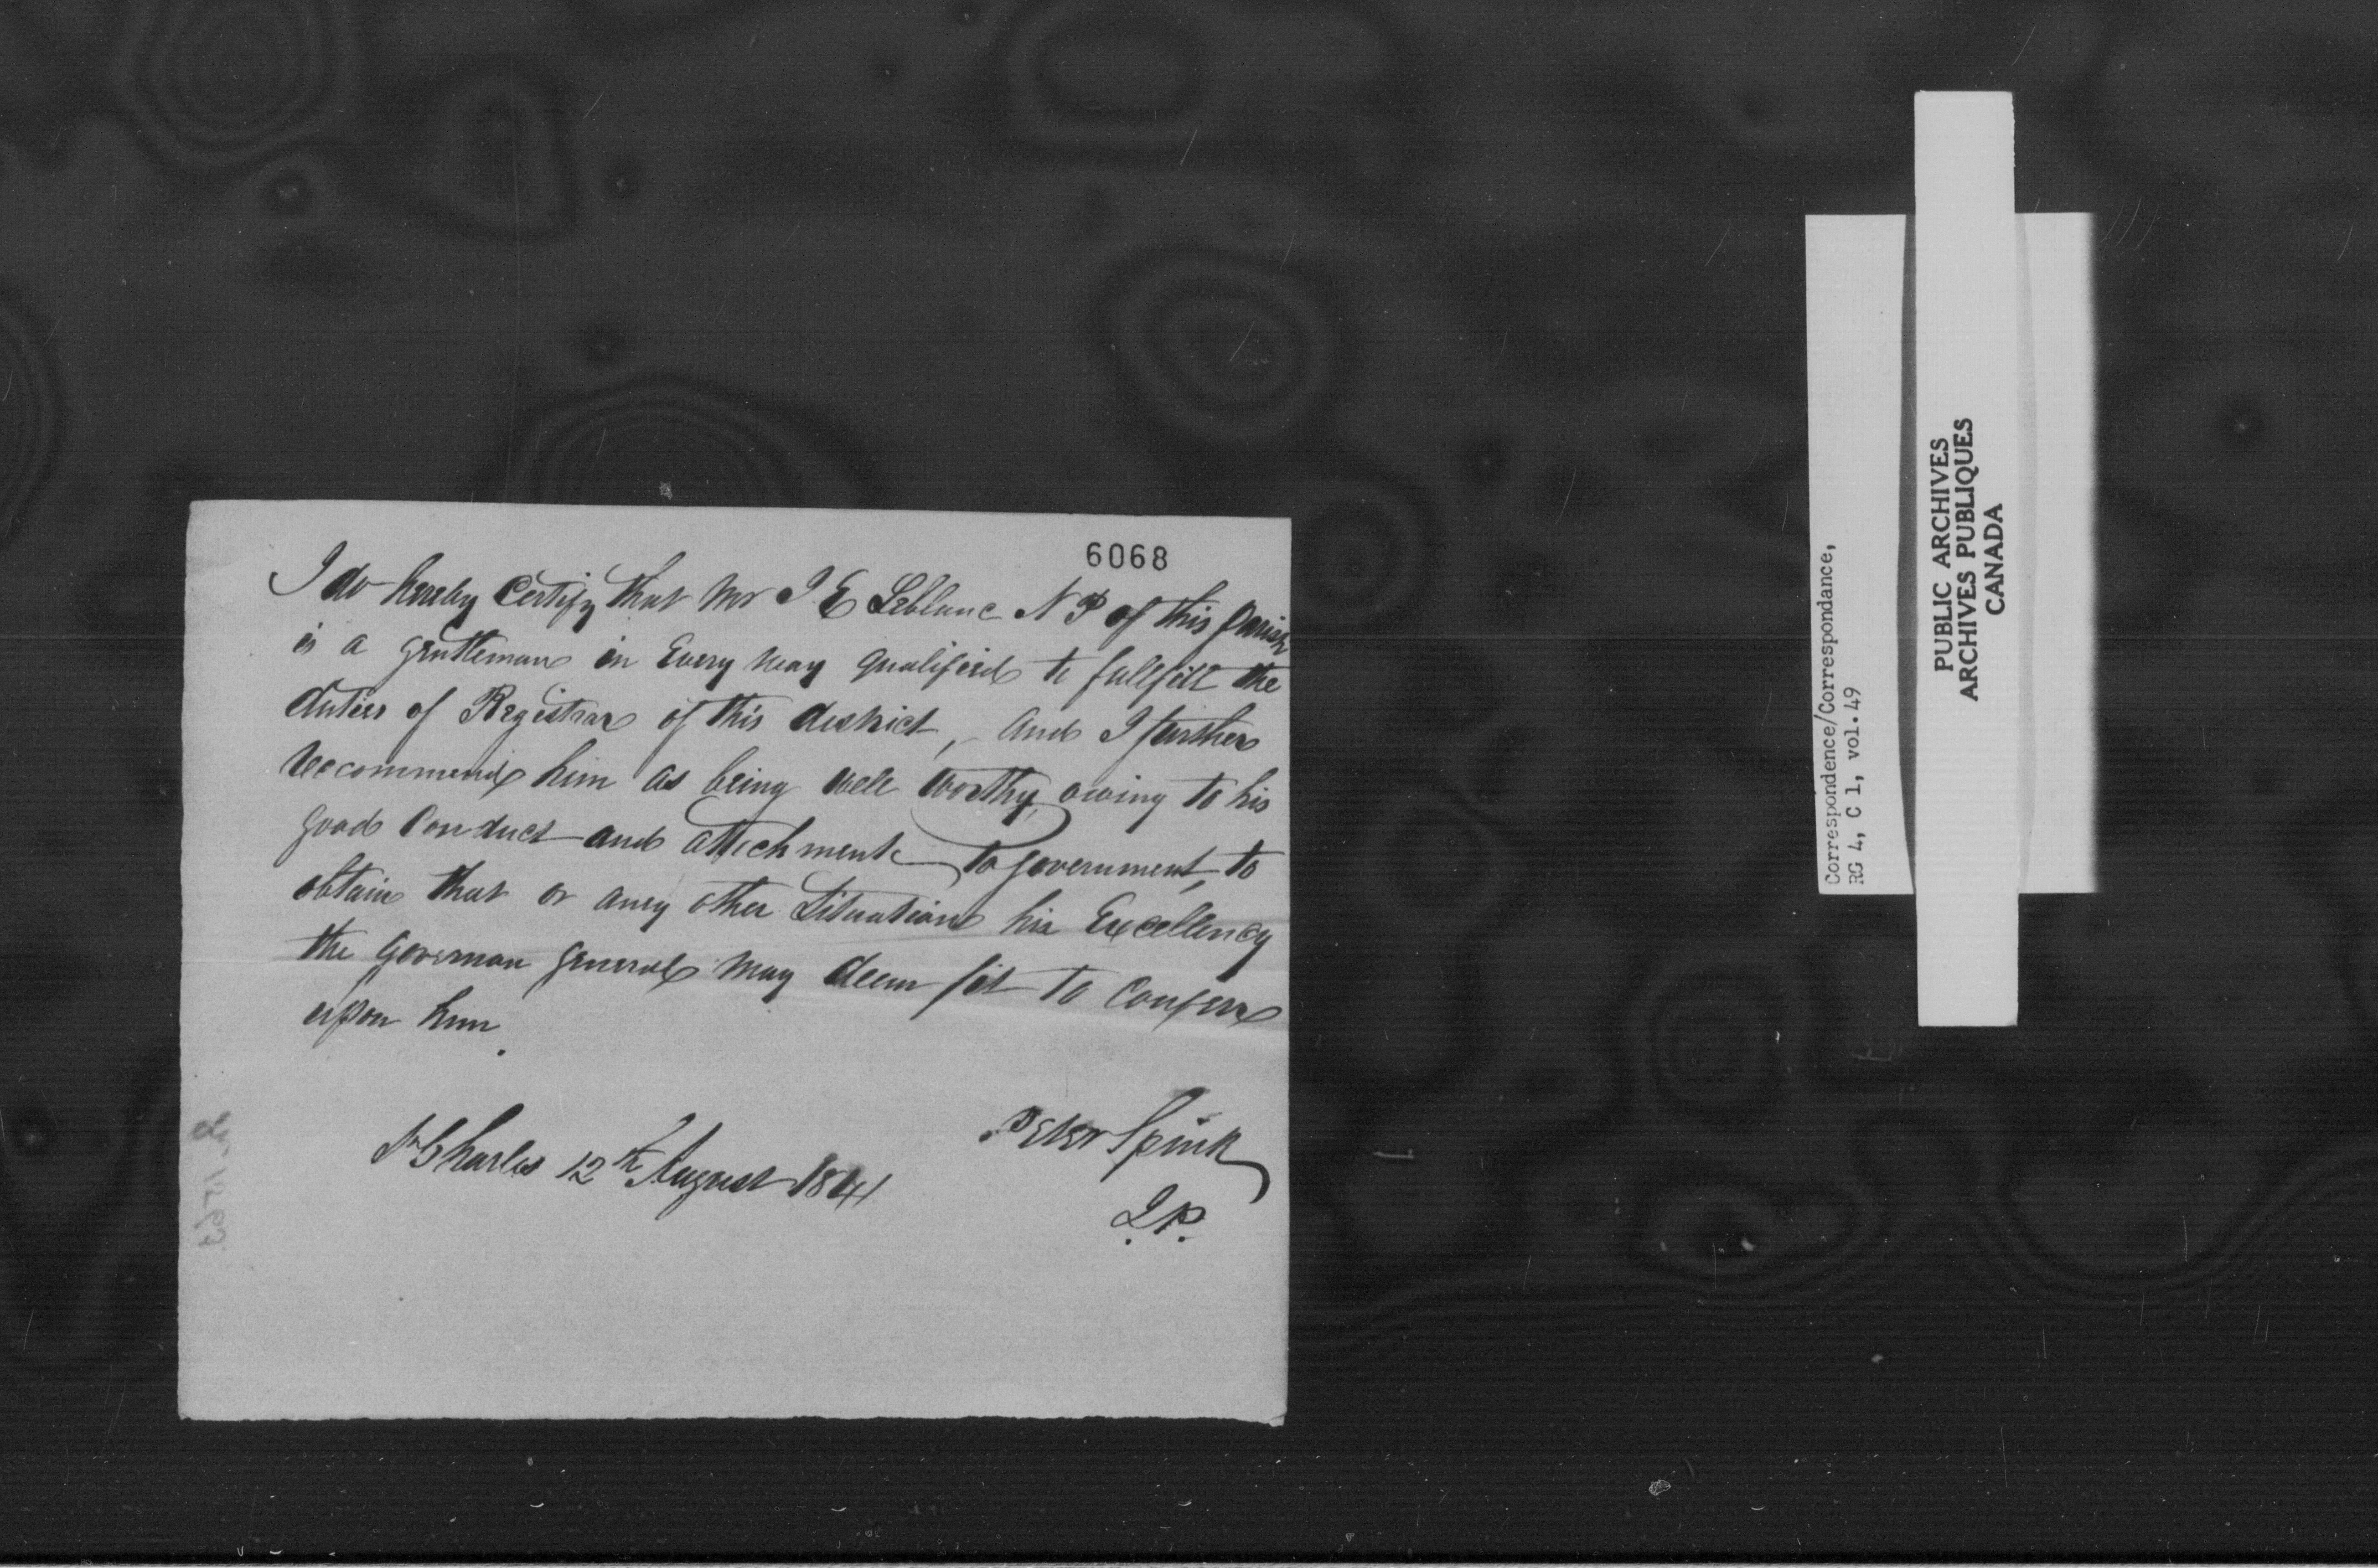 6068
I do hereby Certify that Mr J E Leblanc N P of this parish
is a gentleman in Every way qualified to fullfill the
duties of Registrar of this district, and I further
recommend him as being well worthy, owing to his
good Conduct and attachment to government, to
obtain that or any other Situation his Excellency
the Governor general may deem fit to Confer
upon him.
St Charles 12th August 1841
Peter Spink
J.P.
Correspondence/Correspondance,
RG 4, C 1, vol.49
PUBLIC ARCHIVES
ARCHIVES PUBLIQUES
CANADA